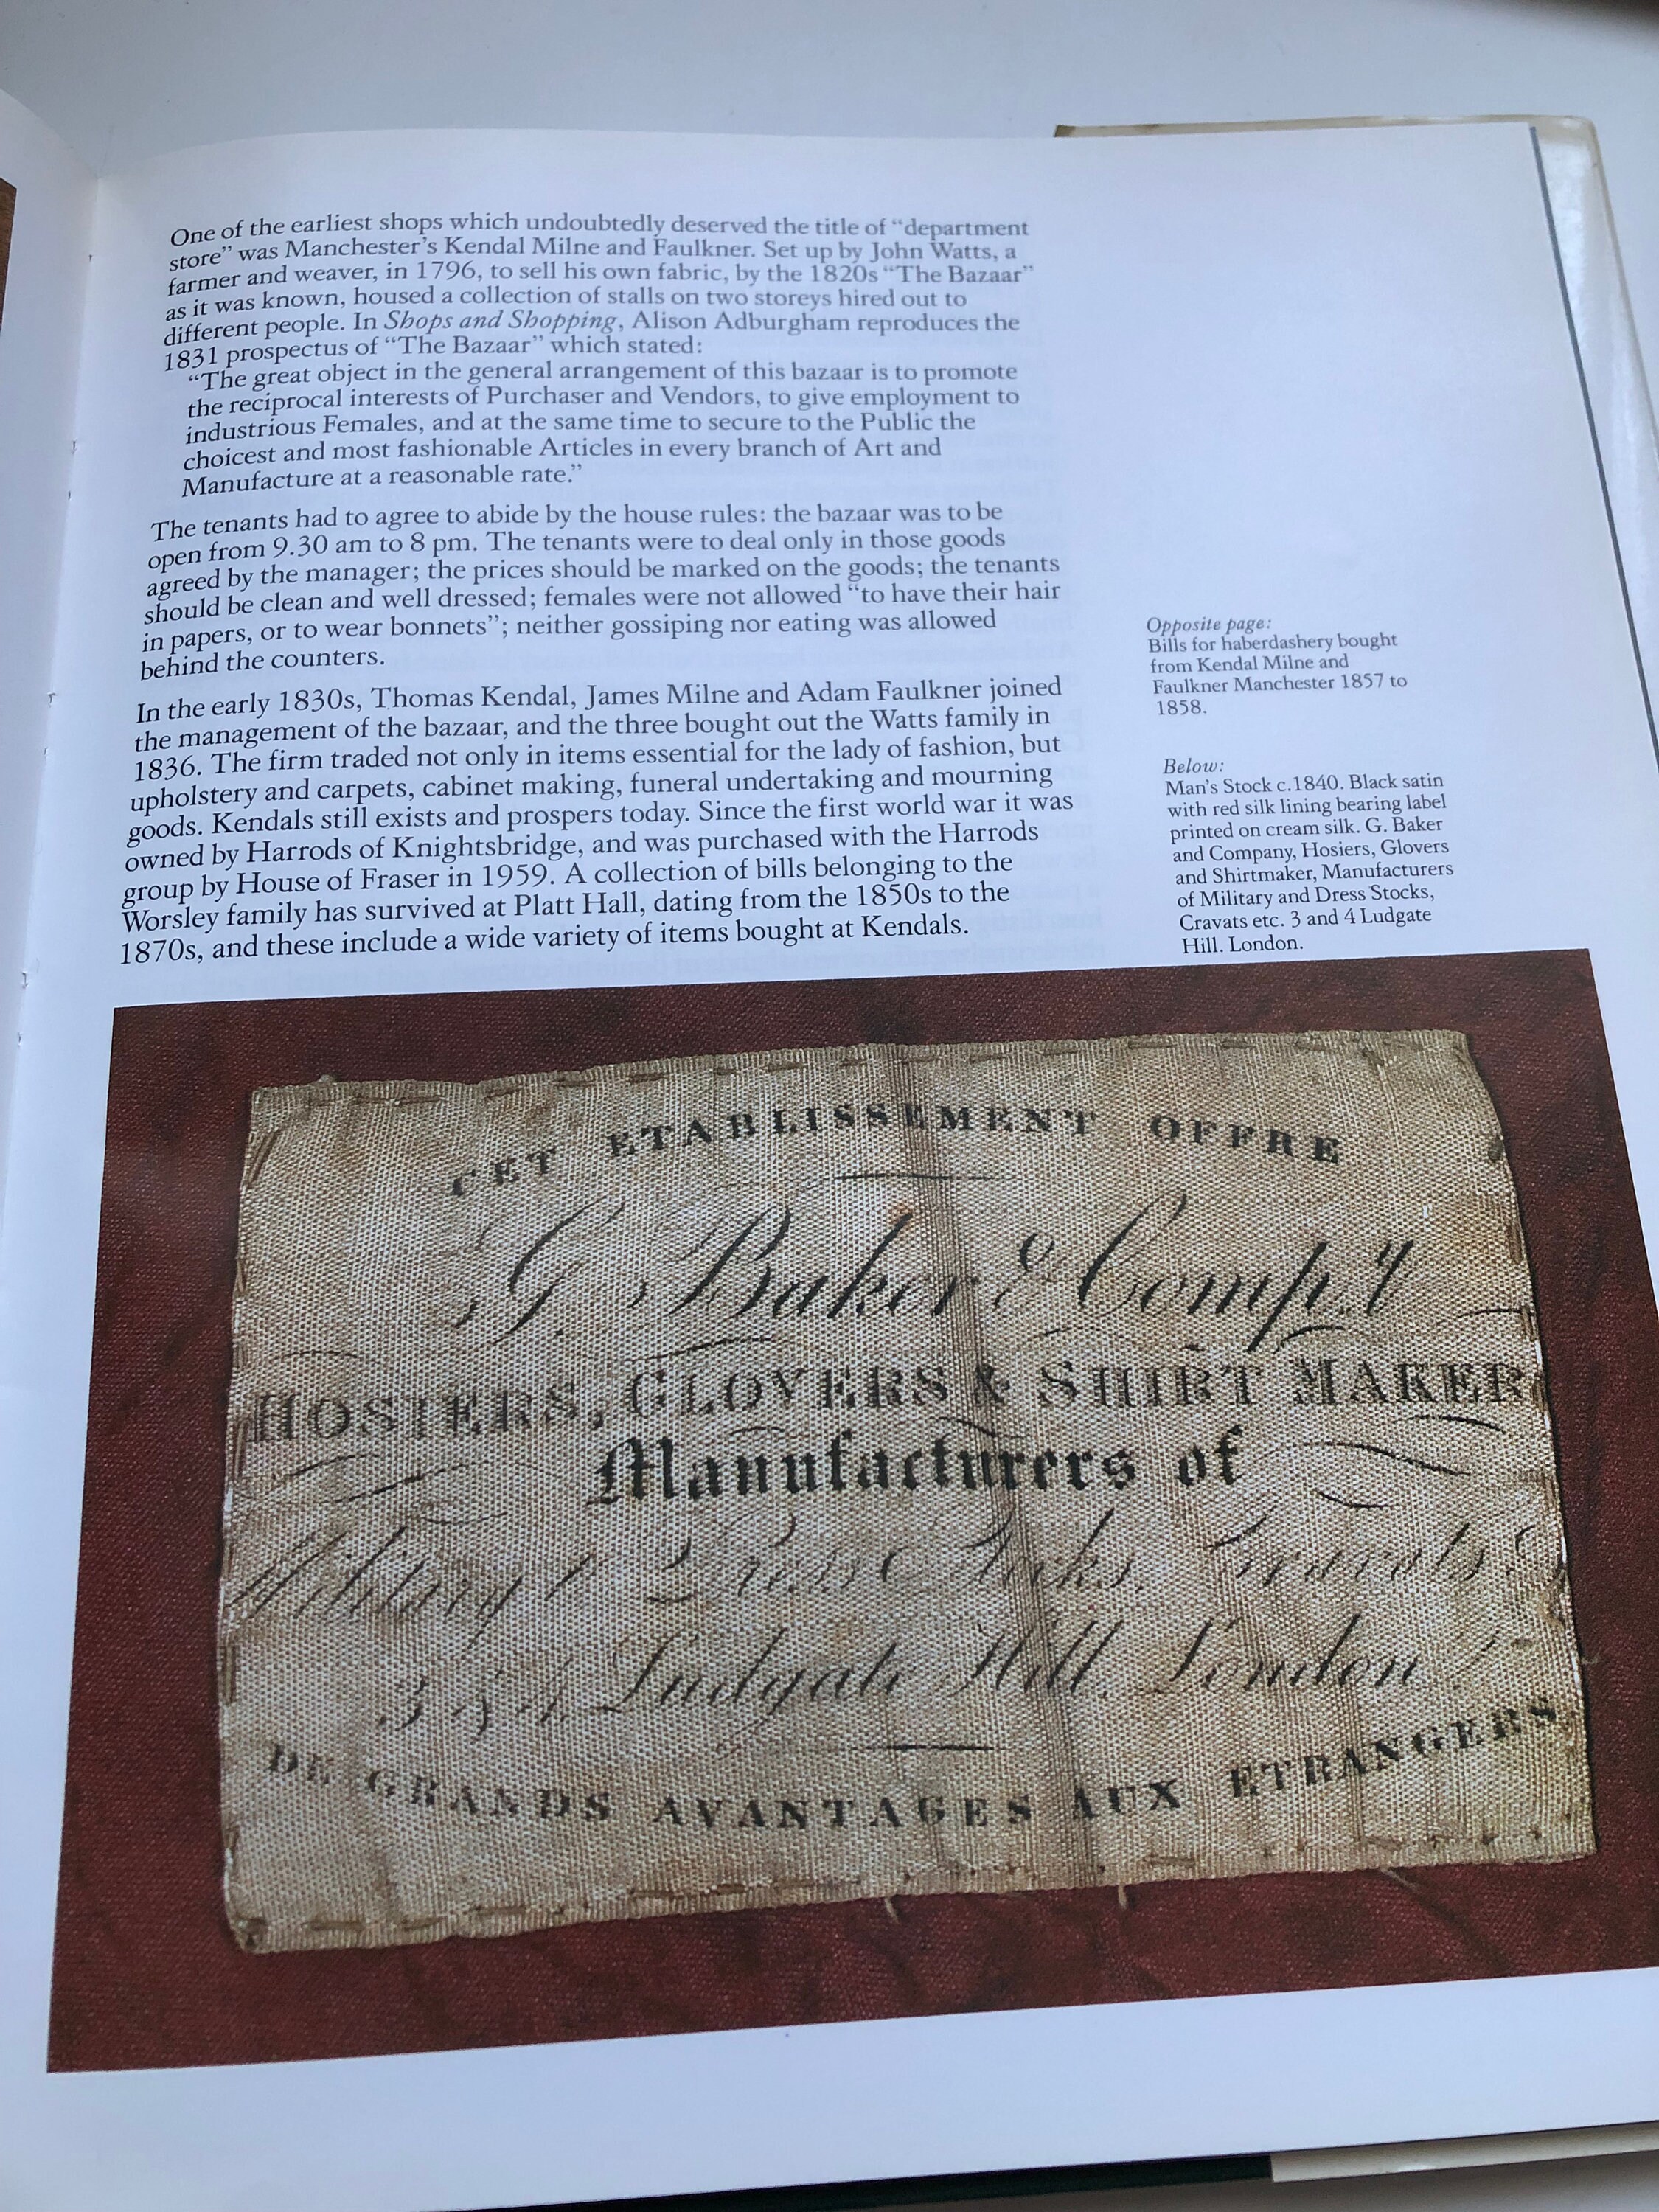 One of the earliest shops which undoubtedly deserved the title of “department
store” was Manchester’s Kendal Milne and Faulkner. Set up by John Watts, a
farmer and weaver, in 1796, to sell his own fabric, by the 1820s “The Bazaar”
as it was known, housed a collection of stalls on two storeys hired out to
different people. In Shops and Shopping, Alison Adburgham reproduces the
1831 prospectus of “The Bazaar” which stated:
“The great object in the general arrangement of this bazaar is to promote
the reciprocal interests of Purchaser and Vendors, to give employment to
industrious Females, and at the same time to secure to the Public the
choicest and most fashionable Articles in every branch of Art and
Manufacture at a reasonable rate.”
The tenants had to agree to abide by the house rules: the bazaar was to be
open from 9.30 am to 8 pm. The tenants were to deal only in those goods
agreed by the manager; the prices should be marked on the goods; the tenants
should be clean and well dressed; females were not allowed “to have their hair
in papers, or to wear bonnets”; neither gossiping nor eating was allowed
behind the counters.
In the early 1830s, Thomas Kendal, James Milne and Adam Faulkner joined
the management of the bazaar, and the three bought out the Watts family in
1836. The firm traded not only in items essential for the lady of fashion, but
upholstery and carpets, cabinet making, funeral undertaking and mourning
goods. Kendals still exists and prospers today. Since the first world war it was
owned by Harrods of Knightsbridge, and was purchased with the Harrods
group by House of Fraser in 1959. A collection of bills belonging to the
Worsley family has survived at Platt Hall, dating from the 1850s to the
1870s, and these include a wide variety of items bought at Kendals.
Opposite page:
Bills for haberdashery bought
from Kendal Milne and
Faulkner Manchester 1857 to
1858.
Below:
Man’s Stock c.1840. Black satin
with red silk lining bearing label
printed on cream silk. G. Baker
and Company, Hosiers, Glovers
and Shirtmaker, Manufacturers
of Military and Dress Stocks,
Cravats etc. 3 and 4 Ludgate
Hill. London.
CET ETABLISSEMENT OFFRE
G. Baker & Comp.y
HOSIERS, GLOVERS & SHIRT MAKER
Manufacturers of
Military & Dress Stocks, Cravats &
3 & 4, Ludgate Hill, London
DE GRANDS AVANTAGES AUX ETRANGERS